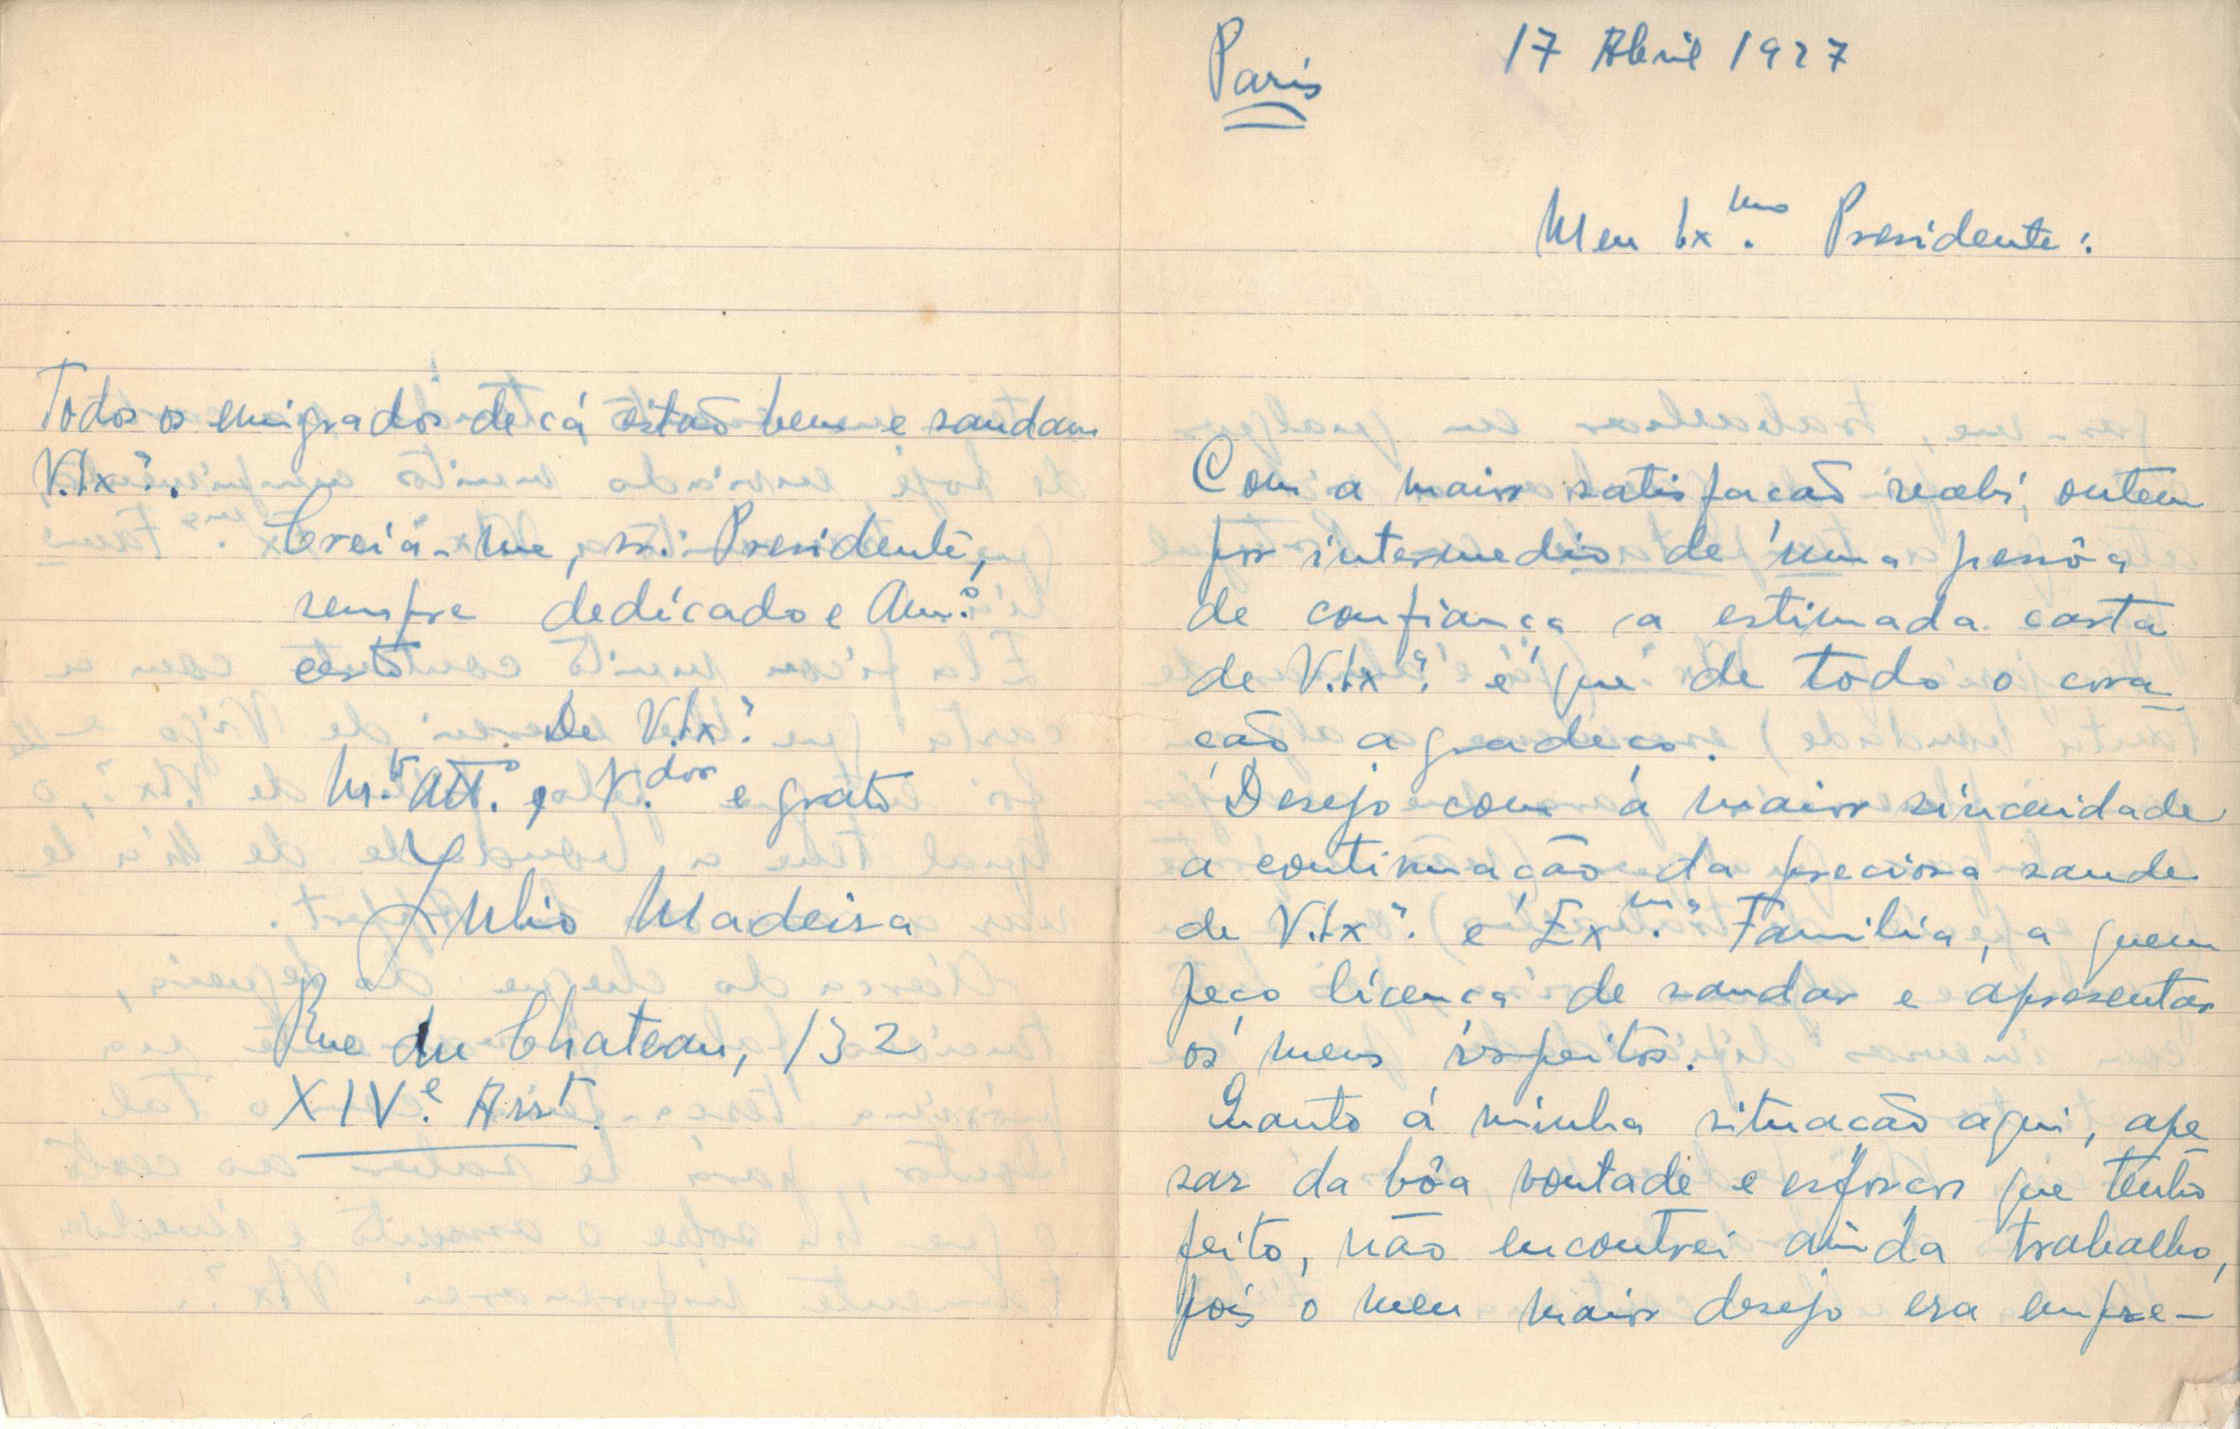 Paris 17 Abril 1927
Meu Ex.mo Presidente:
Com a maior satisfacão recebi, ontem
por intermedio de uma pessôa
de confiança a estimada carta
de V.Ex.ª e que de todo o cora-
cão agradeco.
Desejo com a maior sinceridade
a continuação da preciosa saude
de V.Ex.ª e Ex.ma Familia, a quem
peço licença de saudar e apresentar
os meus respeitos.
Quanto á minha situacão aqui, ape
sar da bôa vontade e esforços que tenho
feito, não encontrei ainda trabalho,
pois o meu maior desejo era empre-
Todos os emigrados de cá estão bem e saudam
V.Ex.ª.
Creia-me, sr. Presidente,
sempre dedicado e Am.º
certo
De V.Ex.ª
M.to Att.º e V.dor e grato
Julio Madeira
Rue du Chateau, 132
XIV.e Arrt.